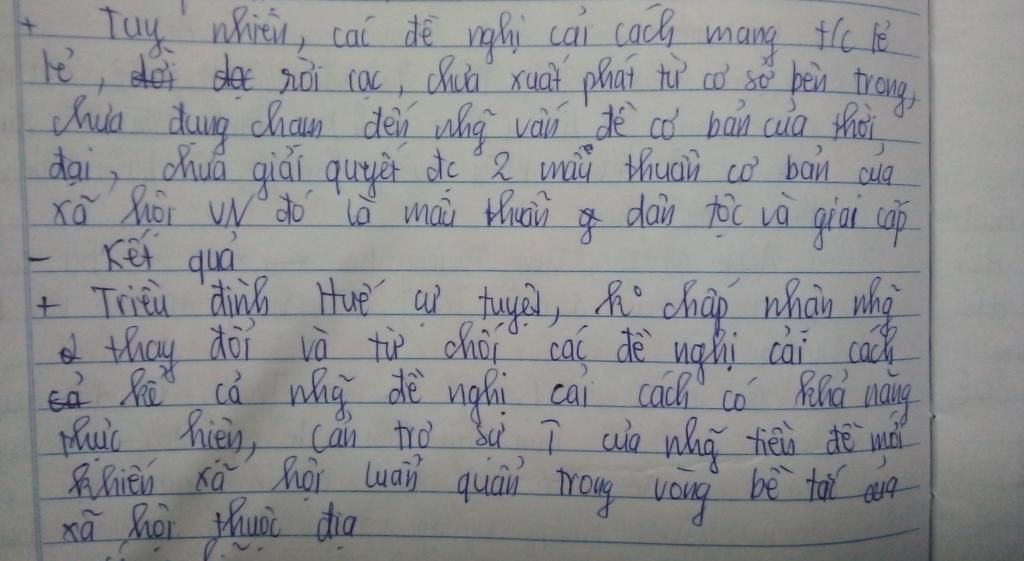 + Tuy nhiên, các đề nghị cải cách mang t/c lẻ
lẻ, rời rạc, chưa xuất phát từ cơ sở bên trong,
chưa đụng chạm đến nhg̃ vấn đề cơ bản của thời
đại, chưa giải quyết đc 2 mâu thuẫn cơ bản của
xã hội VN đó là mâu thuẫn dân tộc và giai cấp
- Kết quả
+ Triều đình Huế cự tuyệt, k° chấp nhận nhg̃
thay đổi và từ chối các đề nghị cải cách
kể cả nhg̃ đề nghị cải cách có khả năng
thực hiện, cản trở sự ↑ của nhg̃ tiền đề mới
khiến xã hội luẩn quẩn trong vòng bế tắc của
xã hội thuộc địa